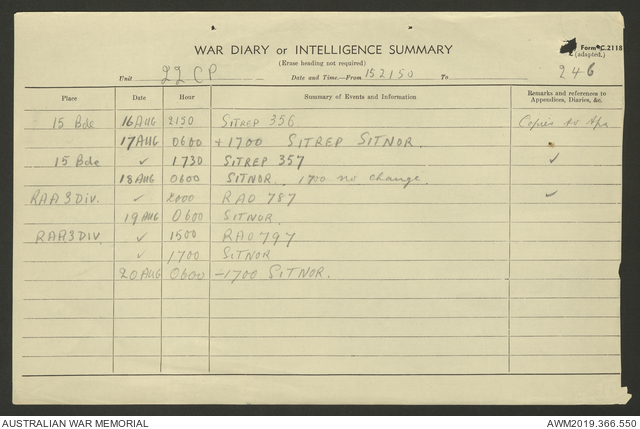 Form C.2118
(adapted.)
WAR DIARY or INTELLIGENCE SUMMARY
(Erase heading not required)
Unit 22 CP Date and Time.—From 152150 To 246
Place Date Hour Summary of Events and Information Remarks and references to Appendices, Diaries, &c.
15 Bde 16 AUG 2150 SITREP 356 Copies to
17 AUG 0600 + 1700 SITREP SITNOR.
15 Bde ✓ 1730 SITREP 357 ✓
18 AUG 0600 SITNOR. 1700 no change.
RAA 3 DIV. ✓ 2000 RAO 787 ✓
19 AUG 0600 SITNOR.
RAA 3 DIV. ✓ 1500 RAO 797
✓ 1700 SITNOR
20 AUG 0600 – 1700 SITNOR.
AUSTRALIAN WAR MEMORIAL AWM2019.366.550